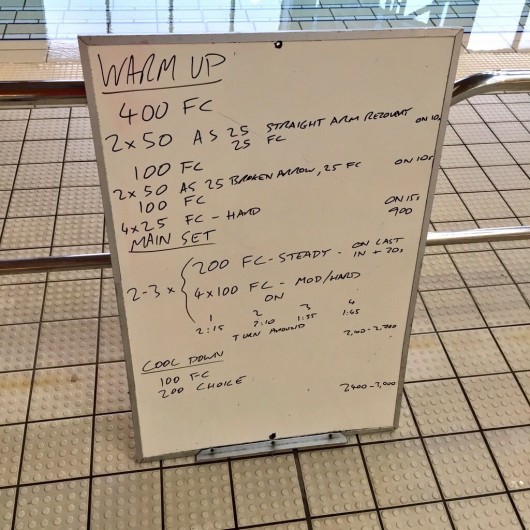 WARM UP
400 FC
2x50 AS 25 STRAIGHT ARM RECOVERY ON 10s
25 FC
100 FC
2x50 AS 25 BROKEN ARROW, 25 FC ON 10s
100 FC
4x25 FC - HARD ON 15s
900
MAIN SET
2-3 x { 200 FC - STEADY - ON LAST IN + 20s
4x100 FC - MOD/HARD
ON
1 2 3 4
2:15 2:10 1:55 1:45
TURN AROUND 2,100-2,700
COOL DOWN
100 FC
200 CHOICE 2400-3,000